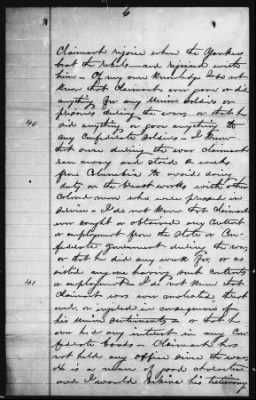 6
Claimant rejoice when the Yankees
beat the rebels — and rejoiced with
him — Of my own Knowledge I do not
know that claimant ever gave or did
anything for any Union Soldiers or
prisoners during the war, or that he
did anything or gave anything to
any Confederate Soldiers — I know
that once during the war claimant
ran away and staid 2 weeks
from Columbia to avoid doing
duty on the breast works with other
Colored men who were pressed in
service — I do not know that claimant
ever sought or obtained any contract
or employment from the State or Con-
federate government during the war,
or that he did any work for, or as-
sisted any one having such contracts
or employment — I do not know that
claimant was ever molested, threat
ened, or injured in consequence of
his Union sentiments — or that he
ever had any interest in any Con-
federate bonds — Claimant has
not held any office since the war.
He is a man of good character
and I would believe his testimony
40
41